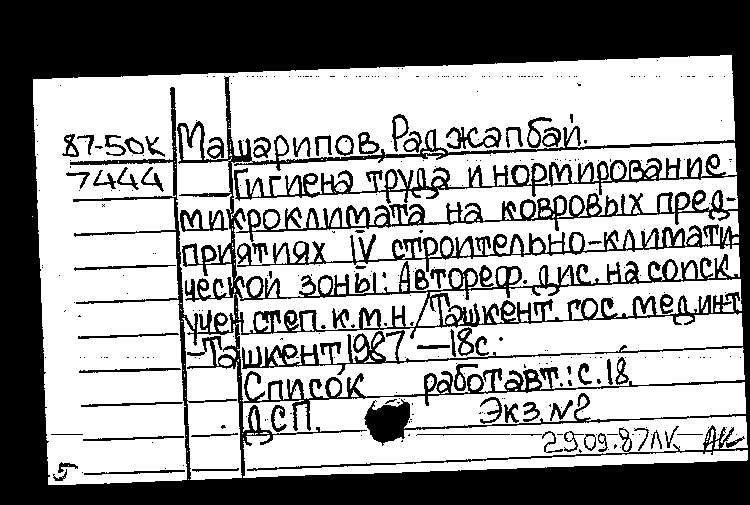 87-50К Машарипов, Раджапбай.
7444 Гигиена труда и нормирование
микроклимата на ковровых пред-
приятиях IV строительно-климати-
ческой зоны: Автореф. дис. на соиск.
учен. степ. к.м.н. / Ташкент. гос. мед. инт
-Ташкент, 1987. -18с.
Список работ авт.: с. 18.
ДСП. Экз. №2
29.09.87 ЛК АК
5